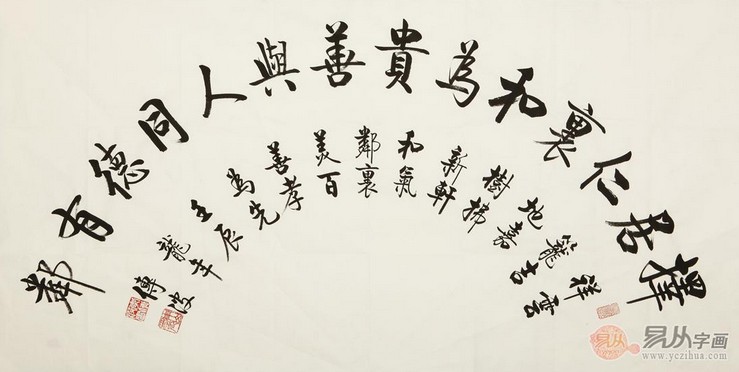 擇居仁裏和為貴善與人同德有鄰
祥雲
籠吉
地嘉
樹拂
新軒
和氣
鄰裏
美百
善孝
為先
壬辰
龍年
傳波
易从字画
www.yczihua.com